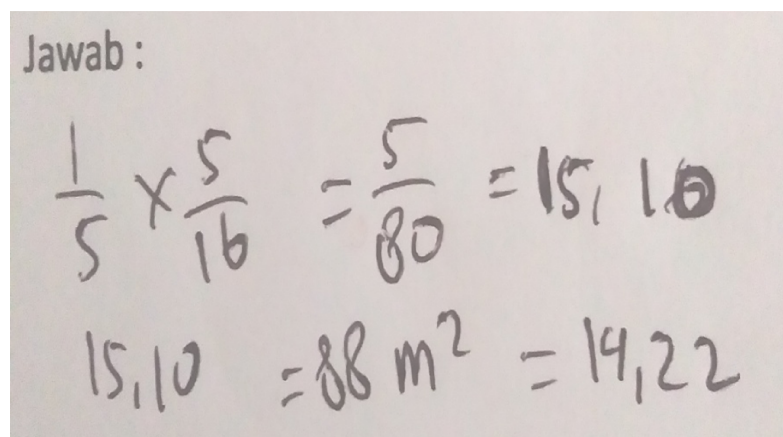 Jawab :
1/5 × 5/16 = 5/80 = 15,10
15,10 = 88 m² = 14,22